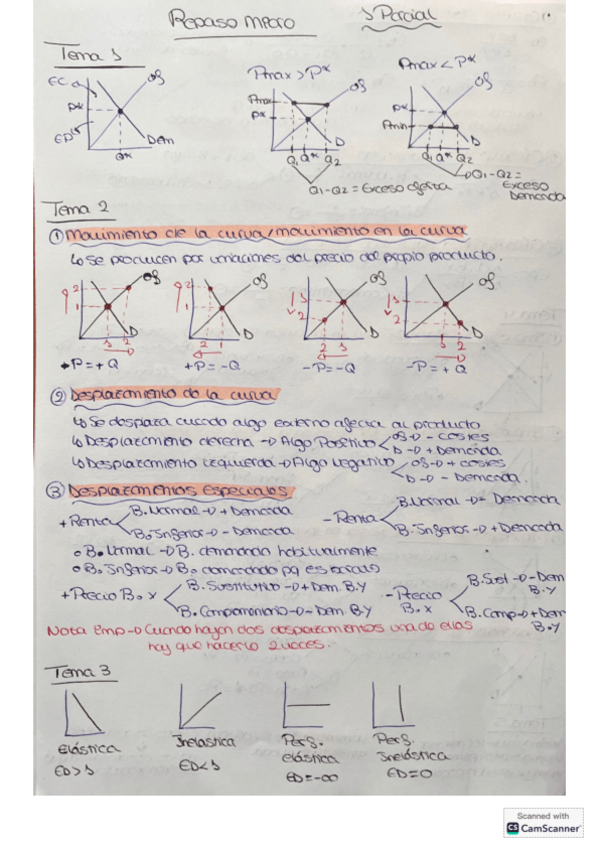 Repaso Micro 1 Parcial
Tema 1
EC
P*
ED
OS
Dem
Q*
Pmax > P*
Pmax
P*
OS
D
Q1 Q* Q2
Q1-Q2 = Exceso oferta
Pmax < P*
P*
Pmin
OS
D
Q1 Q* Q2
Q1-Q2 =
Exceso
Demanda
Tema 2
① Movimiento de la curva/movimiento en la curva
↳ Se producen por variaciones del precio del propio producto.
2
1
OS
D
1 2
+P=+Q
2
1
OS
D
2 1
+P=-Q
1
2
OS
D
2 1
-P=-Q
1
2
OS
D
1 2
-P=+Q
② Desplazamiento de la curva
↳ Se desplaza cuando algo externo afecta al producto
↳ Desplazamiento derecha → Algo Positivo < OS → - costes
D → + Demanda
↳ Desplazamiento izquierda → Algo Negativo < OS → + costes
D → - Demanda.
③ Desplazamientos especiales
+ Renta < B. Normal → + Demanda
B. Inferior → - Demanda
- Renta < B. Normal → - Demanda
B. Inferior → + Demanda
• B. Normal → B. demandan habitualmente
• B. Inferior → B. demandado pq es barato
+ Precio B. X < B. Sustitutivo → + Dem. B.Y
B. Complementario → - Dem. B.Y
- Precio B. X < B. Sust → - Dem B.Y
B. Comp → + Dem B.Y
Nota Emp → Cuando hayan dos desplazamientos una de ellas
hay que hacerlo 2 veces.
Tema 3
Elástica
ED>1
Inelástica
ED<1
Perf.
elástica
ED=-∞
Perf.
Inelástica
ED=0
Scanned with
CS CamScanner